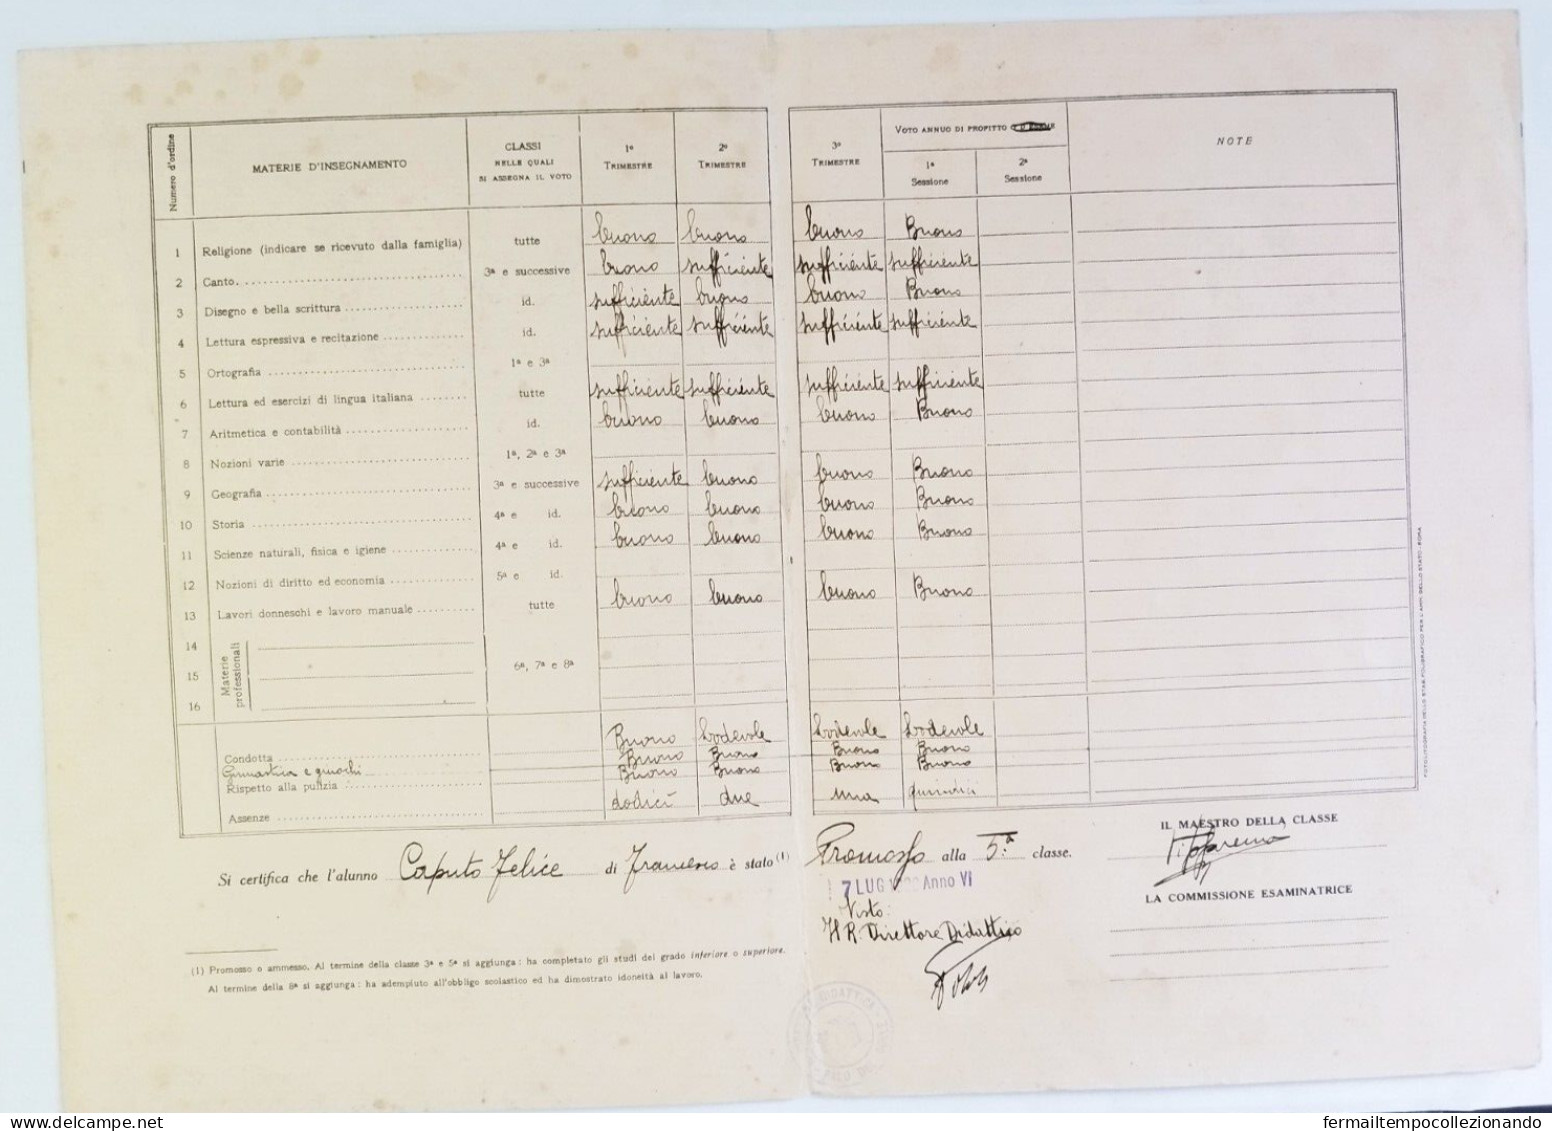 Numero d'ordine MATERIE D'INSEGNAMENTO CLASSI NELLE QUALI SI ASSEGNA IL VOTO 1º TRIMESTRE 2º TRIMESTRE 3º TRIMESTRE VOTO ANNUO DI PROFITTO 1ª Sessione 2ª Sessione NOTE
1 Religione (indicare se ricevuto dalla famiglia) tutte buono buono buono Buono
2 Canto. 3ª e successive buono sufficiente sufficiente sufficiente
3 Disegno e bella scrittura id. sufficiente buono buono Buono
4 Lettura espressiva e recitazione id. sufficiente sufficiente sufficiente sufficiente
5 Ortografia 1ª e 3ª
6 Lettura ed esercizi di lingua italiana tutte sufficiente sufficiente sufficiente sufficiente
7 Aritmetica e contabilità id. buono buono buono Buono
8 Nozioni varie 1ª, 2ª e 3ª
9 Geografia 3ª e successive sufficiente buono buono Buono
10 Storia 4ª e id. buono buono buono Buono
11 Scienze naturali, fisica e igiene 4ª e id. buono buono buono Buono
12 Nozioni di diritto ed economia 5ª e id.
13 Lavori donneschi e lavoro manuale tutte buono buono buono Buono
14
15 Materie professionali 6ª, 7ª e 8ª
16
Condotta Buono Lodevole Lodevole Lodevole
Ginnastica e giuochi Buono Buono Buono Buono
Rispetto alla pulizia Buono Buono Buono Buono
Assenze dodici due una quindici
Si certifica che l'alunno Caputo Felice di Francesco è stato (1) Promosso alla 5ª classe.
IL MAESTRO DELLA CLASSE
7 LUG Anno VI
LA COMMISSIONE ESAMINATRICE
Visto:
Il R. Direttore Didattico
(1) Promosso o ammesso. Al termine della classe 3ª e 5ª si aggiunga: ha completato gli studi del grado inferiore o superiore.
Al termine della 8ª si aggiunga: ha adempiuto all'obbligo scolastico ed ha dimostrato idoneità al lavoro.
DIDATTICA
FOTOLITOGRAFIA DELLO STAB. POLIGRAFICO PER L'AMM. DELLO STATO - ROMA
fermailtempocollezionando